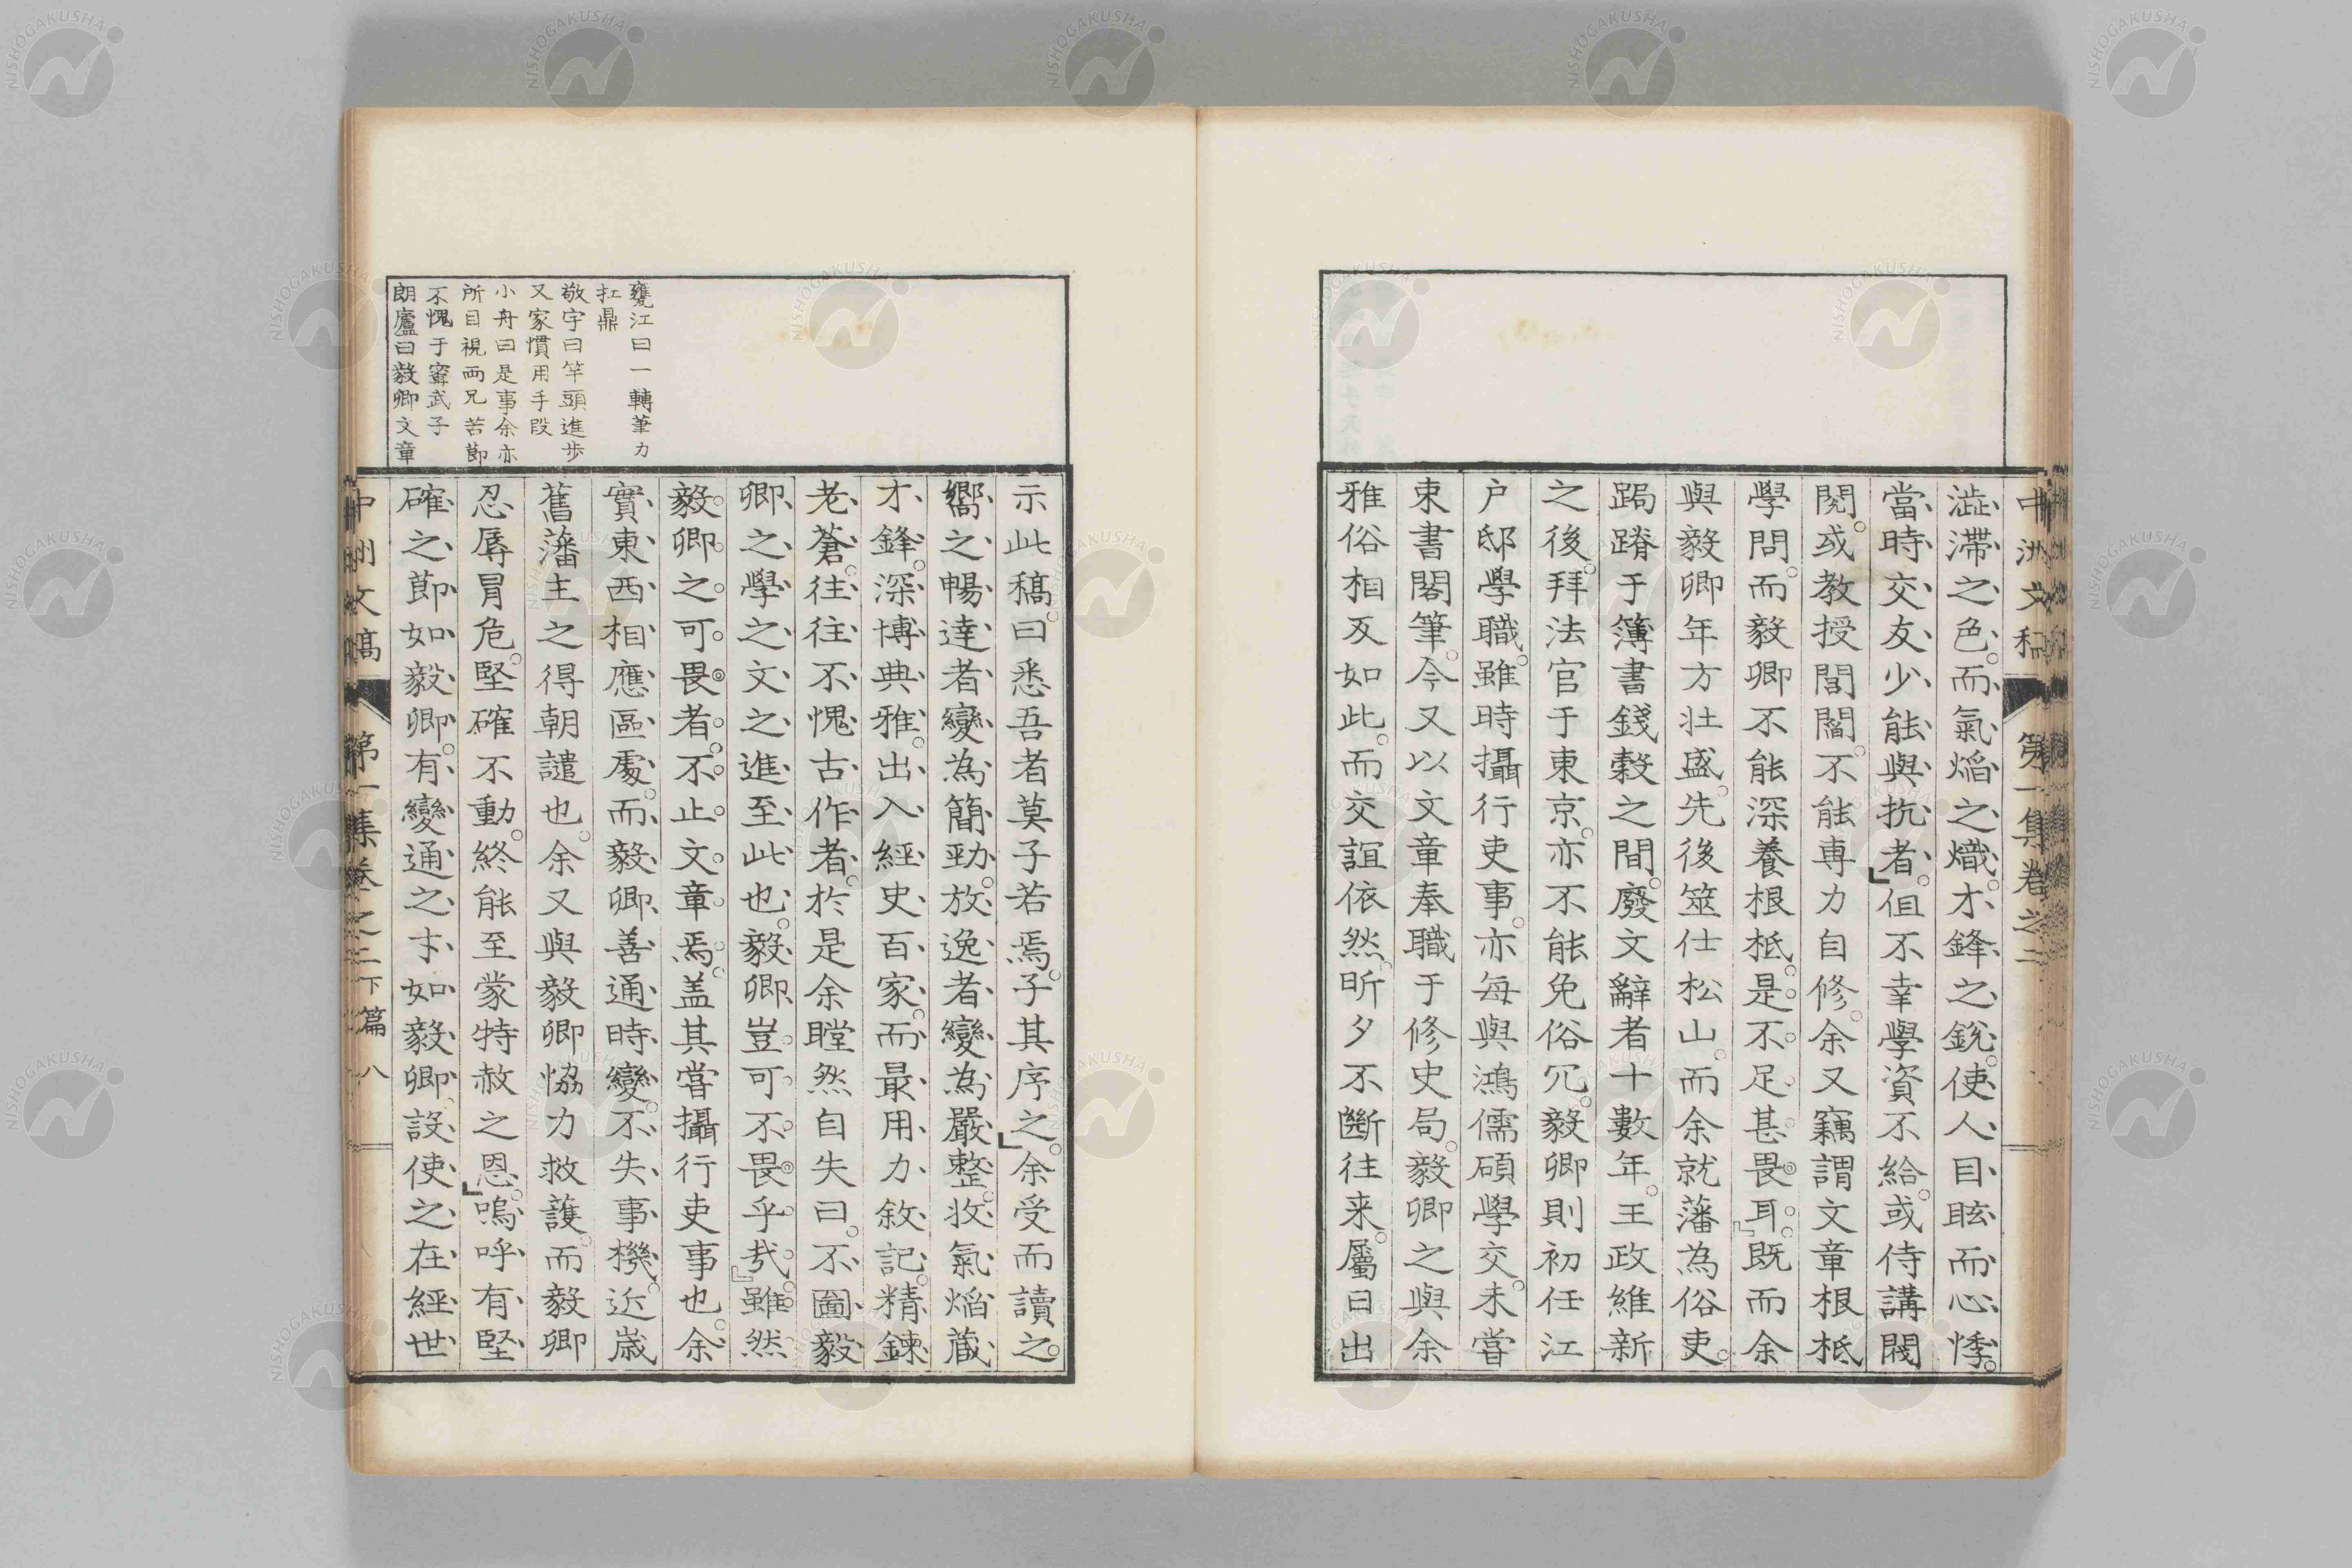 中洲文稿 第一集卷之二
澁滯之色。而氣焰之熾。才鋒之銳。使人目眩而心悸。
當時交友少能與抗者。但不幸學資不給。或侍講閥
閱。或教授閭閻。不能專力自修。余又竊謂文章根柢
學問。而毅卿不能深養根柢。是不足甚畏耳。既而余
與毅卿年方壯盛。先後筮仕松山。而余就藩為俗吏。
跼蹐于簿書錢穀之間。廢文辭者十數年。王政維新
之後。拜法官于東京。亦不能免俗冗。毅卿則初任江
户邸學職。雖時攝行吏事。亦每與鴻儒碩學交。未嘗
束書閣筆。今又以文章奉職于修史局。毅卿之與余
雅俗相反如此。而交誼依然。昕夕不斷往来。屬日出
示此稿。曰悉吾者莫子若焉。子其序之。余受而讀之。
嚮之暢達者變為簡勁。放逸者變為嚴整。收氣焰蔵
才鋒。深博典雅。出入經史百家。而最用力敘記。精鍊
老蒼。往往不愧古作者。於是余瞠然自失曰。不圖毅
卿之學之文之進至此也。毅卿豈可不畏乎哉。雖然
毅卿之可畏者。不止文章焉。盖其嘗攝行吏事也。余
實東西相應區處。而毅卿善通時變。不失事機。近歲
舊藩主之得朝譴也。余又與毅卿恊力救護。而毅卿
忍辱冒危。堅確不動。終能至蒙特赦之恩。嗚呼有堅
確之節如毅卿。有變通之才如毅卿。設使之在經世
甕江曰一轉筆力
扛鼎
敬宇曰竿頭進步
又家慣用手段
小舟曰是事余亦
所目視两兄苦節
不愧于甯武子
朗廬曰毅卿文章
中洲文稿 第一集卷之二下篇 八